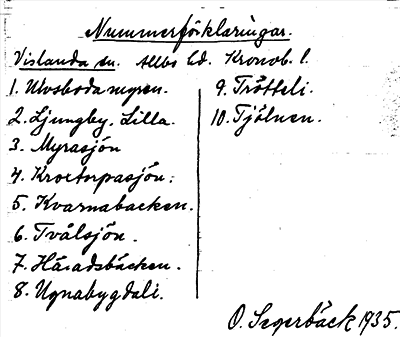 Nummerförklaringar.
Vislanda sn. Allbo hd. Kronob. l.
1. Ulvsboda myren.
2. Ljungby, Lilla.
3. Myrasjön
4. Kroxtorpasjön.
5. Kvarnabacken.
6. Tvålsjön.
7. Häradsbäcken.
8. Ugnabygdali.
9. Trötteli.
10. Tjölnen.
O. Segerbäck 1935.